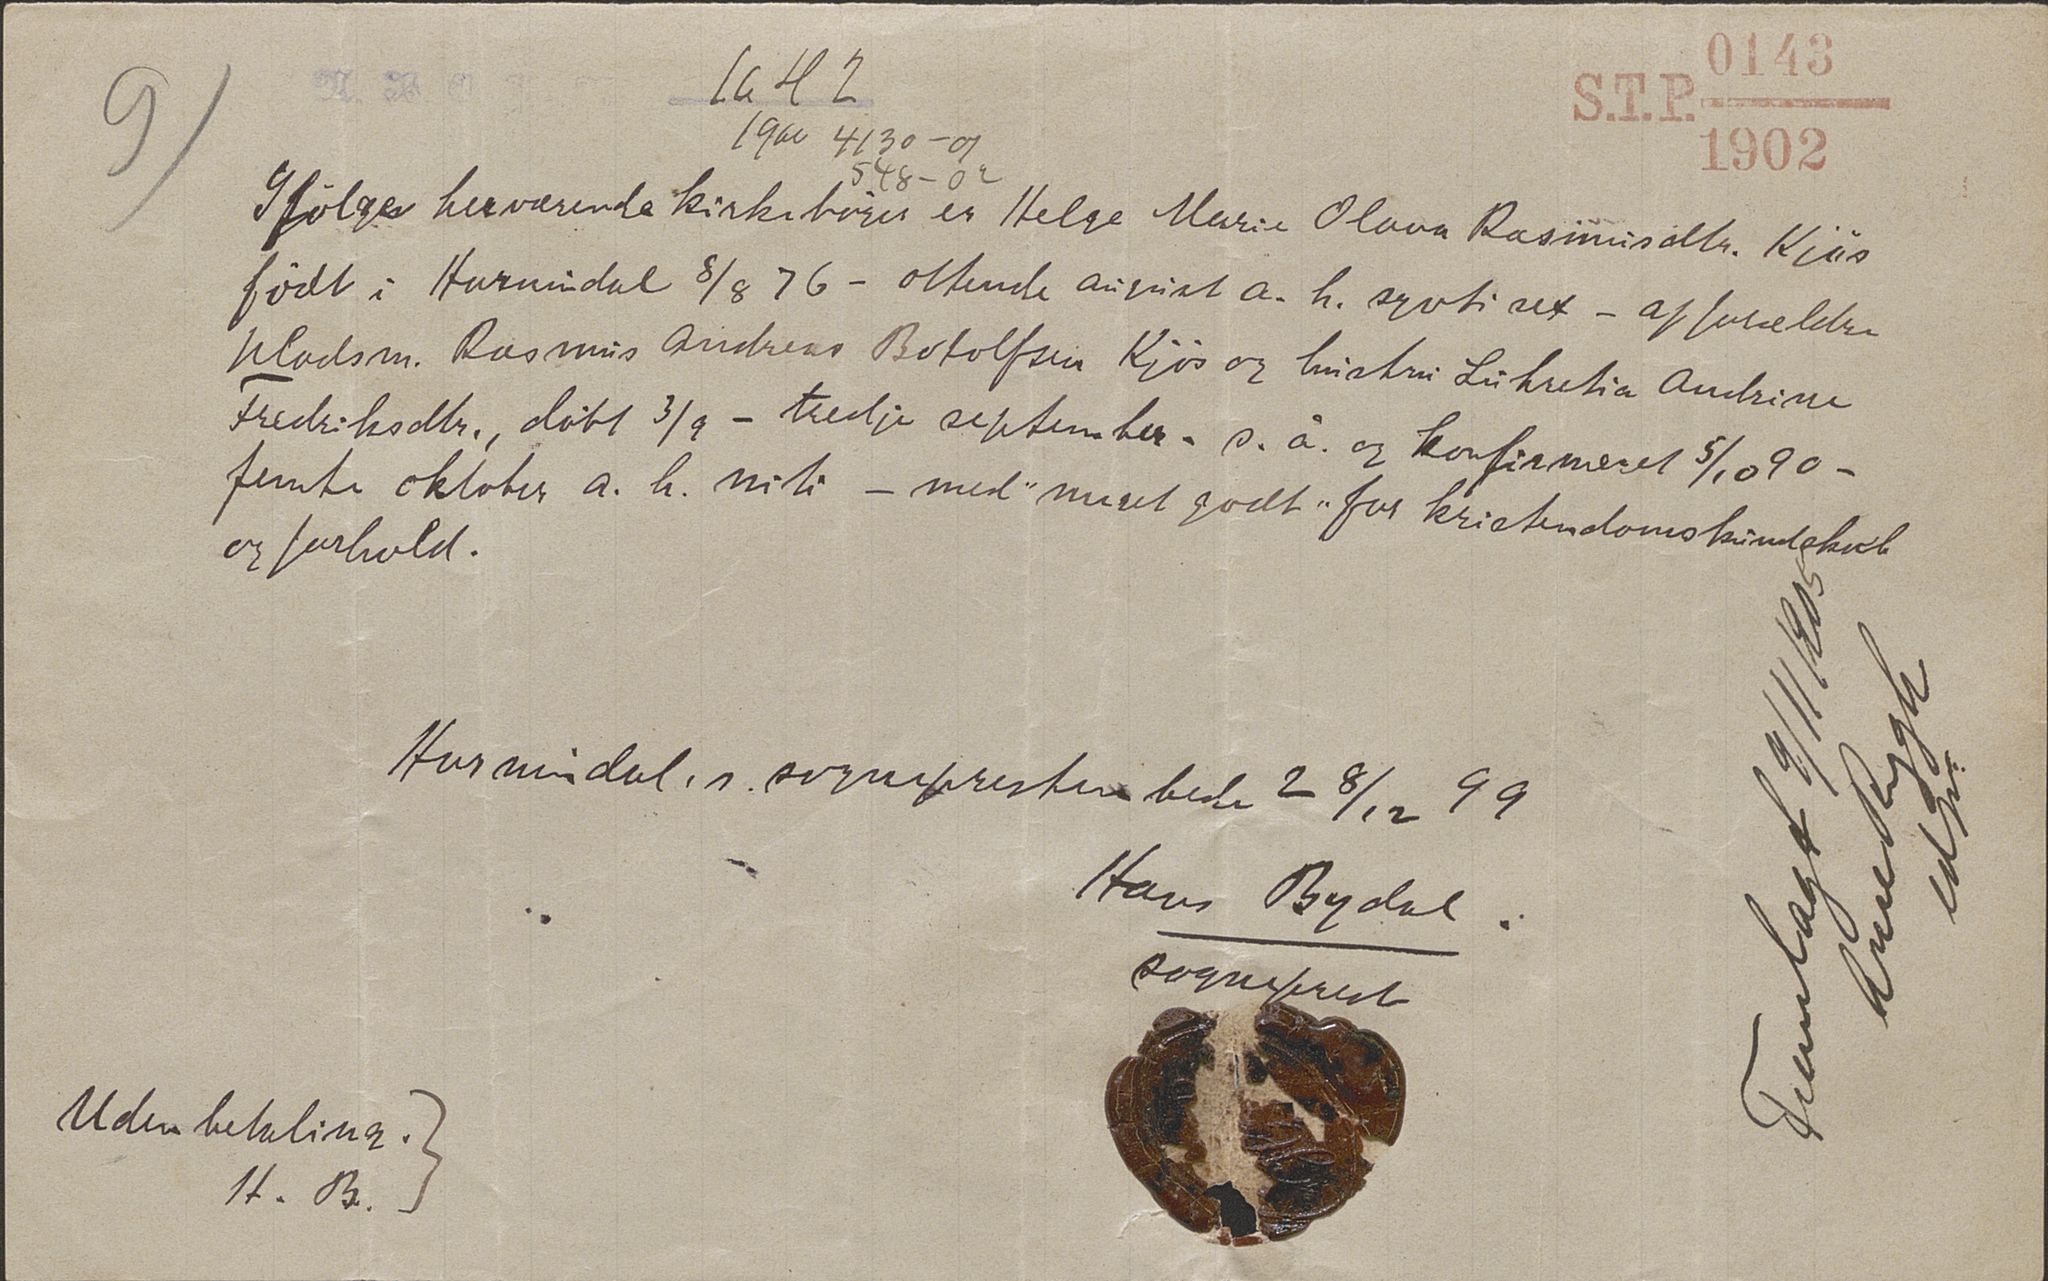 9/
S.T.P. 0143
1902
4130-01
548-02
Ifølge herværende kirkebøger er Helge Marie Olava Rasmusdtr. Kjös
födt i Hornindal 8/8 76 - ottende august a. h. sytti sex - af forældre
pladsm. Rasmus Andreas Botolfsen Kjös og hustru Lukretia Andrine
Fredriksdtr., döbt 3/9 - tredje september - s. å. og konfirmeret 5/10 90 -
femte oktober a. h. nitti - med "meget godt" for kristendomskundskab
og forhold.
Hornindal, sogneprestembede 28/12 99
Hans Bydal.
sogneprest
Uden betaling.
H. B.
Fremlagt 9/11/1905